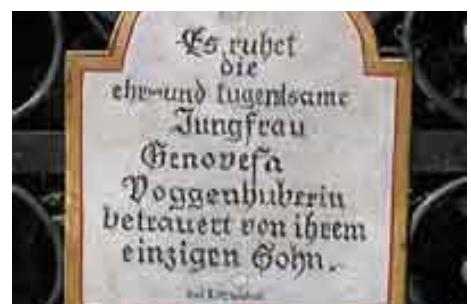 Es ruhet
die
ehr-und tugentsame
Jungfrau
Genovefa
Voggenhuberin
betrauert von ihrem
einzigen Sohn.